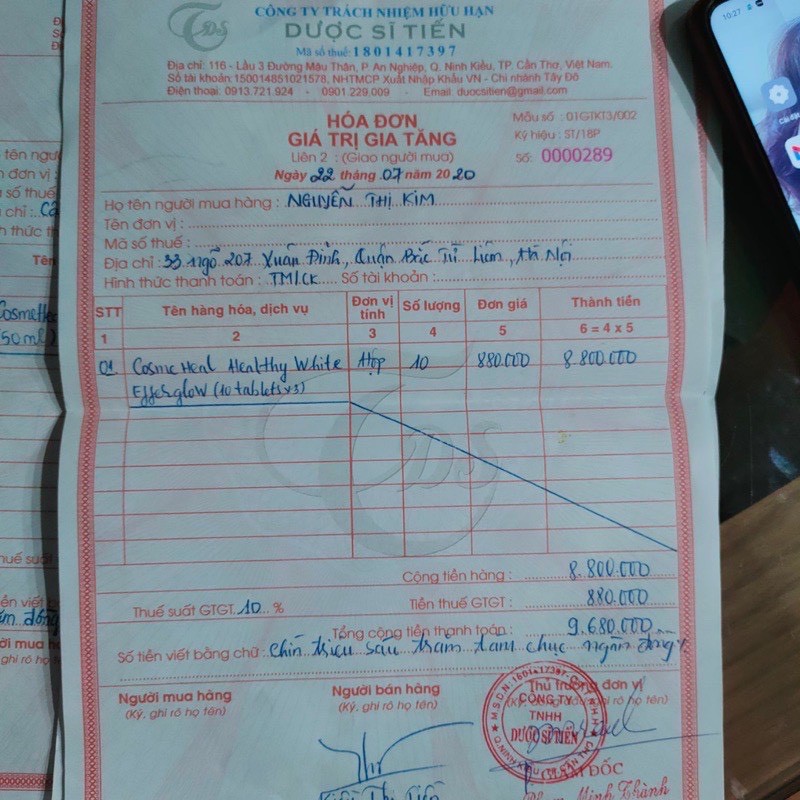 CÔNG TY TRÁCH NHIỆM HỮU HẠN
TDS
DƯỢC SĨ TIẾN
Mã số thuế: 1801417397
Địa chỉ: 116 - Lầu 3 Đường Mậu Thân, P. An Nghiệp, Q. Ninh Kiều, TP. Cần Thơ, Việt Nam.
Số tài khoản: 150014851021578, NHTMCP Xuất Nhập Khẩu VN - Chi nhánh Tây Đô
Điện thoại: 0913.721.924 - 0901.229.009 - Email: duocsitien@gmail.com
HÓA ĐƠN
GIÁ TRỊ GIA TĂNG
Liên 2 : (Giao người mua)
Ngày 22 tháng 07 năm 2020
Mẫu số : 01GTKT3/002
Ký hiệu : ST/18P
Số: 0000289
Họ tên người mua hàng : NGUYỄN THỊ KIM
Tên đơn vị :
Mã số thuế :
Địa chỉ : 33 ngõ 207 Xuân Đỉnh, Quận Bắc Từ Liêm, Hà Nội
Hình thức thanh toán : TM/CK Số tài khoản :
STT Tên hàng hóa, dịch vụ Đơn vị tính Số lượng Đơn giá Thành tiền
1 2 3 4 5 6 = 4 x 5
01 CosmeHeal Healthy White Hộp 10 880.000 8.800.000
Efferglow (10 tablets x3)
Cộng tiền hàng : 8.800.000
Thuế suất GTGT: 10 % Tiền thuế GTGT : 880.000
Tổng cộng tiền thanh toán : 9.680.000
Số tiền viết bằng chữ : Chín triệu sáu trăm tám chục ngàn đồng
Người mua hàng
(Ký, ghi rõ họ tên)
Người bán hàng
(Ký, ghi rõ họ tên)
Thủ trưởng đơn vị
CÔNG TY
TNHH
DƯỢC SĨ TIẾN
GIÁM ĐỐC
Phan Minh Thành
10:27